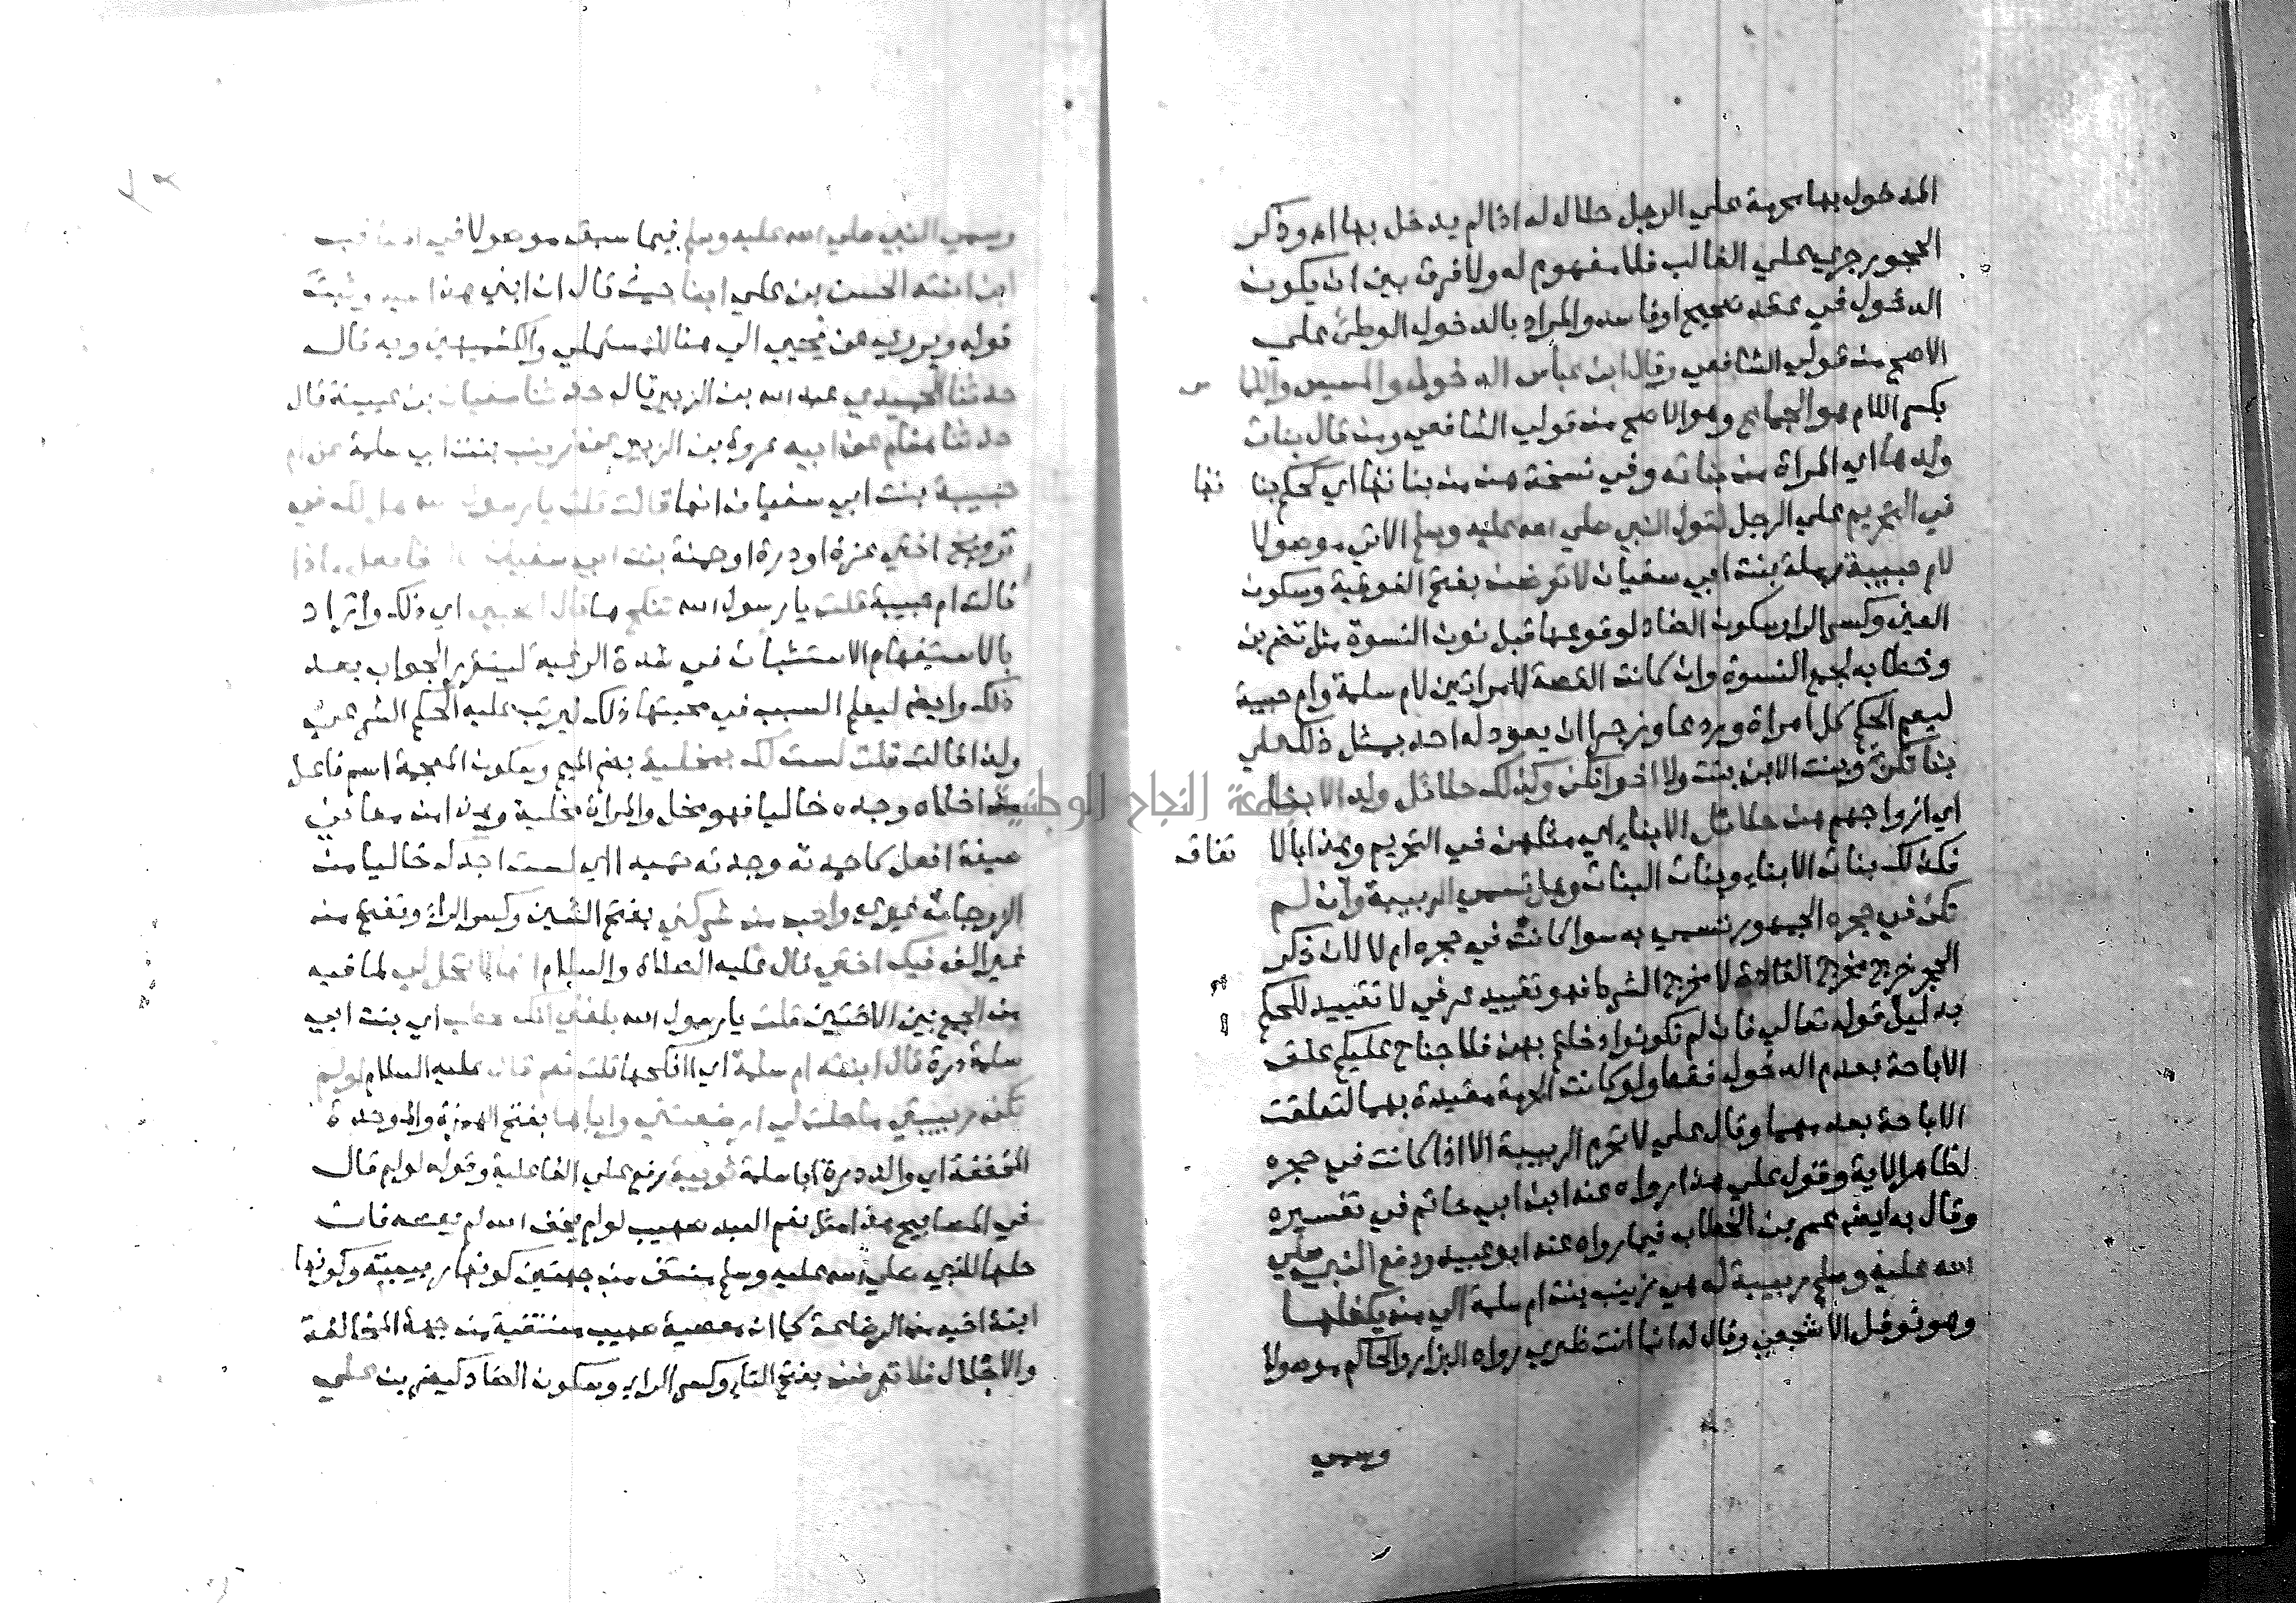 المدخول بها محرمة علي الرجل حلال له اذا لم يدخل بها اه وذكر
الحجور جري علي الغالب فلا مفهوم له ولا فرق بين ان يكون
الدخول في عقد صحيح او فاسد والمراد بالدخول الوطئ علي
الاصح من قولي الشافعي وقال ابن عباس الدخول والمسيس واللماس
بكسر اللام هو الجماع وهو الاصح من قولي الشافعي ومن قال بنات
ولدها اي المراة من بناته وفي نسخة هن من بناتها اي كحكم بناتها
في التحريم علي الرجل لقول النبي صلي الله عليه وسلم الاتي موصولا
لام حبيبة رملة بنت ابي سفيان لا تعرضن بفتح الفوقية وسكون
العين وكسر الراء وسكون الضاد لوقوعها قبل نون النسوة مثل تضربن
وخطابه لجمع النسوة وان كانت القصة لامراتين لام سلمة وام حبيبة
ليعم الحكم كل امراة وردعا وزجرا ان يعود له احد بمثل ذلك علي
بناتكن وبنت الابن بنت ولا اخواتكن وكذلك حلائل ولد الابنا
اي ازواجهم هن حلائل الابناء اي مثلهن في التحريم وهذا بالاتفاق
فكذلك بنات الابناء وبنات البنات وهل تسمي الربيبة وان لم
تكن في حجره الجمهور تسمي به سوا كانت في حجره ام لا لان ذكر
الحجر خرج مخرج العادة لا مخرج الشرط فهو تقييد عرفي لا تقييد للحكم
بدليل قوله تعالي فان لم تكونوا دخلتم بهن فلا جناح عليكم علق
الاباحة بعدم الدخول فقط ولو كانت الحرمة مقيدة بهما لتعلقت
الاباحة بعدمهما وقال علي لا تحرم الربيبة الا اذا كانت في حجره
لظاهر الاية وقول علي هذا رواه عنه ابن ابي حاتم في تفسيره
وقال به ايضا عمر بن الخطاب فيما رواه عنه ابو عبيد ودفع النبي صلي
الله عليه وسلم ربيبة له هي زينب بنت ام سلمة الي من يكفلها
وهو نوفل الاشجعي وقال له انما انت ظئري رواه البزار والحاكم موصولا
وسمي
وسمي النبي صلي الله عليه وسلم فيما سبق موصولا في المناقب
ابن ابنته الحسن بن علي ابنا حيث قال ان ابني هذا سيد وثبت
قوله ويروي من يحيي الي هنا للمستملي والكشميهني وبه قال
حدثنا الحميدي عبد الله بن الزبير قال حدثنا سفيان بن عيينة قال
حدثنا هشام عن ابيه عروة بن الزبير عن زينب بنت ابي سلمة عن ام
حبيبة بنت ابي سفيان انها قالت قلت يا رسول الله هل لك في
تزويج اختي عزة او درة او حمنة بنت ابي سفيان قال فافعل ماذا
قالت ام حبيبة قلت يا رسول الله تنكحها قال اتحبين اي ذلك واراد
بالاستفهام الاستثبات في شدة الرغبة ليتقرر الجواب بعد
ذلك وايضا ليعلم السبب في محبتها ذلك ليرتب عليه الحكم الشرعي
ولذا قالت قلت لست لك بمخلية بضم الميم وسكون المعجمة اسم فاعل
من اخلاه وجده خاليا فهو مخل والمراة مخلية وهذا من معاني
صيغة افعل كاحمدته وجدته حميدا اي لست اجدك خاليا من
الزوجات غيري واحب من شركني بفتح الشين وكسر الراء وتفتح من
غير الف فيك اختي قال عليه الصلاة والسلام انها لا تحل لي لما فيه
من الجمع بين الاختين قلت يا رسول الله بلغني انك تخطب اي بنت ابي
سلمة درة قال ابنة ام سلمة اي اانكحها قلت نعم قال عليه السلام لو لم
تكن ربيبتي ما حلت لي ارضعتني واياها بفتح الهمزة والموحدة
المخففة اي والد درة ابا سلمة ثويبة برفع علي الفاعلية وقوله لو لم قال
في المصابيح هذا مثل نعم العبد صهيب لو لم يخف الله لم يعصه فان
حلها للنبي صلي الله عليه وسلم منتف من جهتين كونها ربيبته وكونها
ابنة اخيه من الرضاعة كما ان معصية صهيب منتفية من جهة المخافة
والاجلال فلا تعرضن بفتح التاء وكسر الراء وسكون الضاد كيضربن علي
جامعة النجاح الوطنية